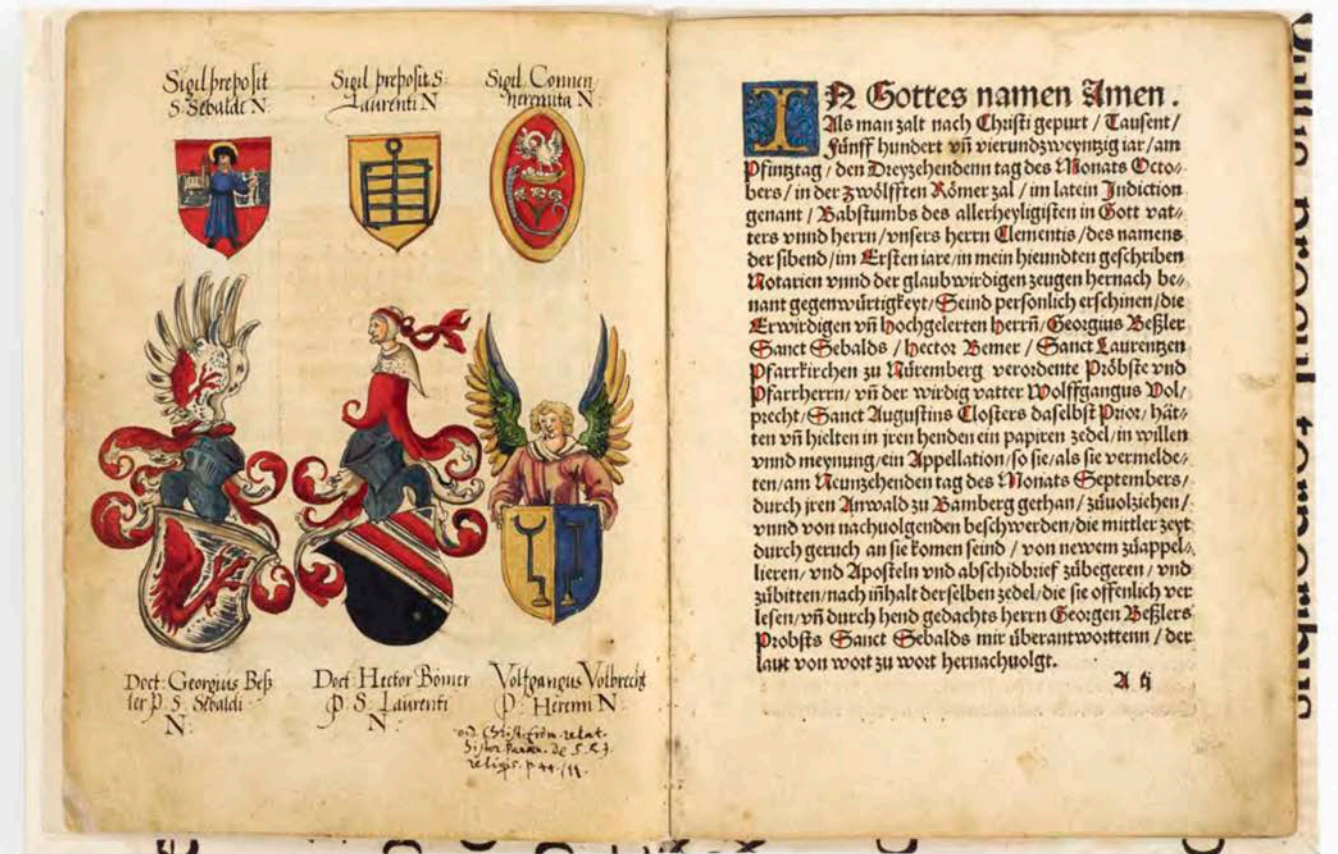 Sigil preposit
S. Sebaldi N.
Sigil preposit S.
Laurenti N
Sigil Conven
N
Doct: Georgius Beß
ler P. S. Sebaldi
N:
Doct Hector Bömer
P. S. Laurenti
N:
Volfgangus Volbrecht
P: Heremi N:
vid. Christ.
de
religis. p 44.
IN Gottes namen Amen.
Als man zalt nach Christi gepurt / Tausent /
Fünff hundert vñ vierundzweyntzig iar / am
Pfintztag / den Dreyzehendenn tag des Monats Octo⸗
bers / in der zwölfften Römer zal / im latein Indiction
genant / Babstumbs des allerheyligisten in Gott vat⸗
ters vnnd herrn / vnsers herrn Clementis / des namens
der sibend / im Ersten iare / in mein hieundten geschriben
Notarien vnnd der glaubwirdigen zeugen hernach be⸗
nant gegenwürtigkeyt / Seind persönlich erschinen / die
Erwirdigen vñ hochgelerten herrñ / Georgius Beßler
Sanct Sebalds / Hector Bemer / Sanct Laurentzen
Pfarrkirchen zu Nüremberg verordente Pröbste vnd
Pfarrherrn / vñ der wirdig vatter Wolffgangus Vol /
precht / Sanct Augustins Closters daselbst Prior / hät⸗
ten vñ hielten in jren henden ein papiren zedel / in willen
vnnd meynung / ein Appellation / so sie / als sie vermelde⸗
ten / am Neunzehenden tag des Monats Septembers /
durch jren Anwald zu Bamberg gethan / zůuolziehen /
vnnd von nachuolgenden beschwerden / die mittler zeyt
durch geruch an sie komen seind / von newem zůappel⸗
lieren / vnd Aposteln vnd abschidbrief zůbegeren / vnd
zůbitten / nach inhalt derselben zedel / die sie offenlich ver
lesen / vñ durch hend gedachts herrn Georgen Beßlers
Probsts Sanct Sebalds mir überantworttenn / der
laut von wort zu wort hernachuolgt.
A ij